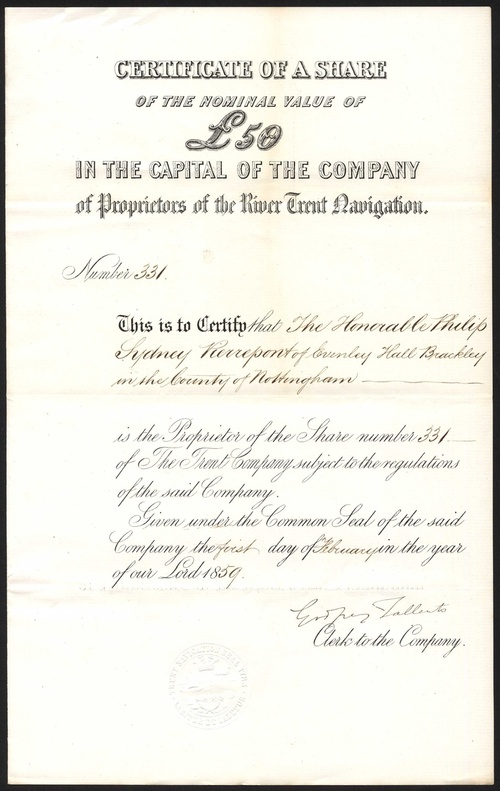 CERTIFICATE OF A SHARE
OF THE NOMINAL VALUE OF
£50
IN THE CAPITAL OF THE COMPANY
of Proprietors of the River Trent Navigation.
Number 331.
This is to Certify that The Honorable Philip
Sydney Pierrepont of Evenley Hall Brackley
in the County of Nottingham
is the Proprietor of the Share number 331
of The Trent Company, subject to the regulations
of the said Company.
Given under the Common Seal of the said
Company the first day of February in the year
of our Lord 1859.
Godfrey
Clerk to the Company.